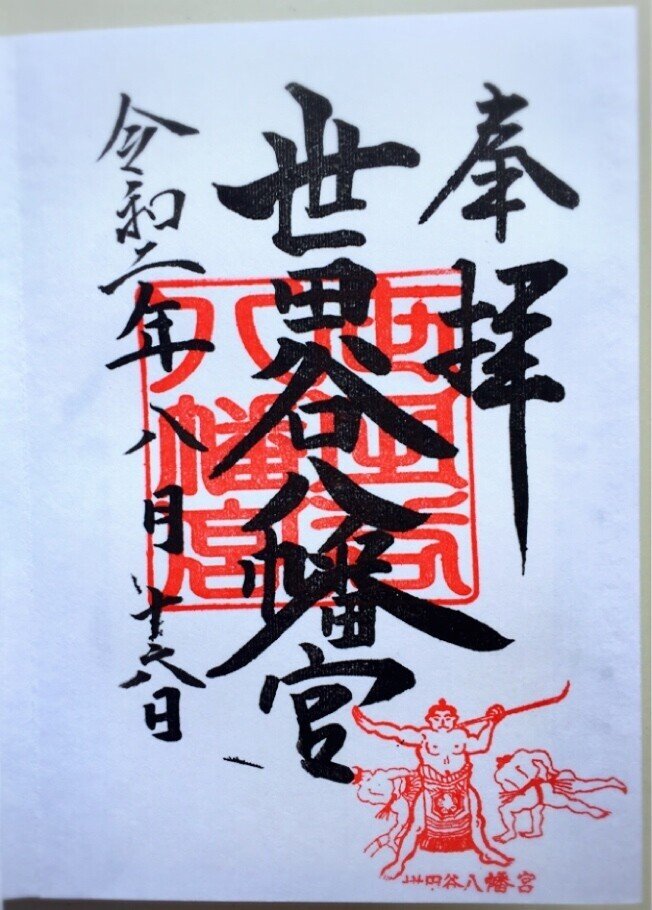 奉拝
世田谷八幡宮
令和二年八月十六日
世田谷
八幡宮
世田谷八幡宮